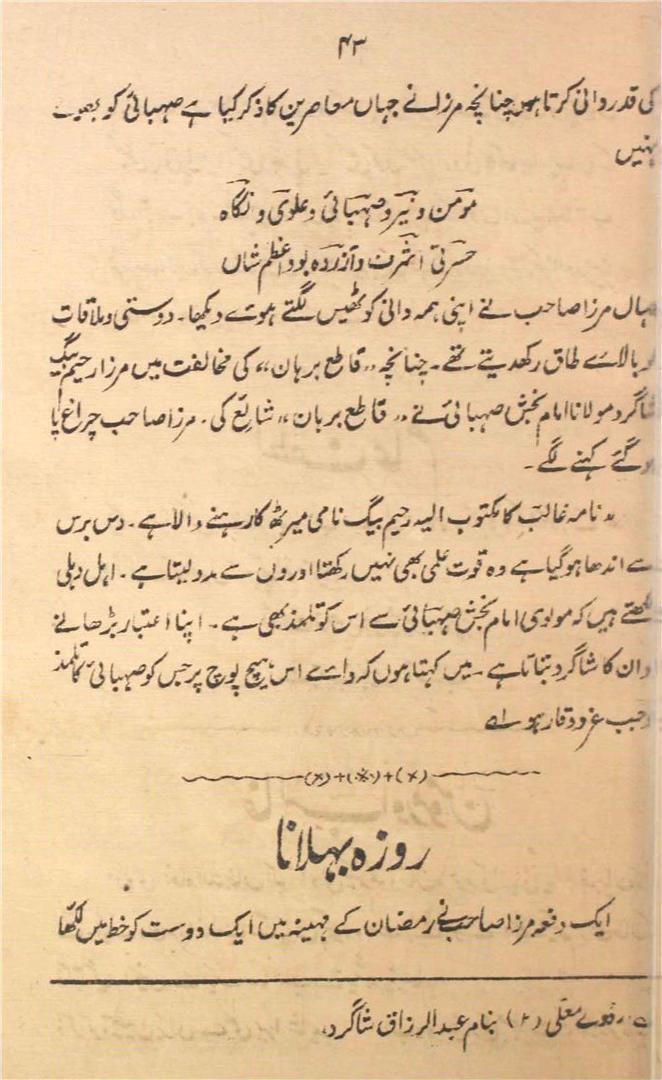 ۴۳
کی قدردانی کرتا ہوں چنانچہ مرزا نے جہاں معاصرین کا ذکر کیا ہے صہبائی کو بھولے
نہیں
مومن و نیر و صہبائی و علوی و نگاہ
حسرتی اشرف و آزردہ بود اعظم شاں
جہاں مرزا صاحب نے اپنی ہمہ دانی کو ٹھیس لگتے ہوئے دیکھا۔ دوستی و ملاقات
کو بالائے طاق رکھدیتے تھے۔ چنانچہ ،،قاطع برہان،، کی مخالفت میں مرزا رحیم بیگ
شاگرد مولانا امام بخش صہبائی نے ،،قاطع برہان،، شایع کی۔ مرزا صاحب چراغ پا
ہوگئے کہنے لگے۔
،،نامہ غالب کا مکتوب الیہ رحیم بیگ نامی میرٹھ کا رہنے والا ہے۔ دس برس
سے اندھا ہوگیا ہے وہ قوت علمی بھی نہیں رکھتا اوروں سے مدد لیتا ہے۔ اہل دہلی
لکھتے ہیں کہ مولوی امام بخش صہبائی سے اس کو تلمذ بھی ہے۔ اپنا اعتبار بڑھانے
کو ان کا شاگرد بتاتا ہے۔ میں کہتا ہوں کہ وائے اس ہیچ پوچ پر جس کو صہبائی کا تلمذ
موجب عز و وقار ہو۔ ۱ھ
(×)+(※)+(×)
روزہ بہلانا
ایک دفعہ مرزا صاحب نے رمضان کے مہینہ میں ایک دوست کو خط میں لکھا
اردوئے معلی (۲) بنام عبدالرزاق شاگرد،